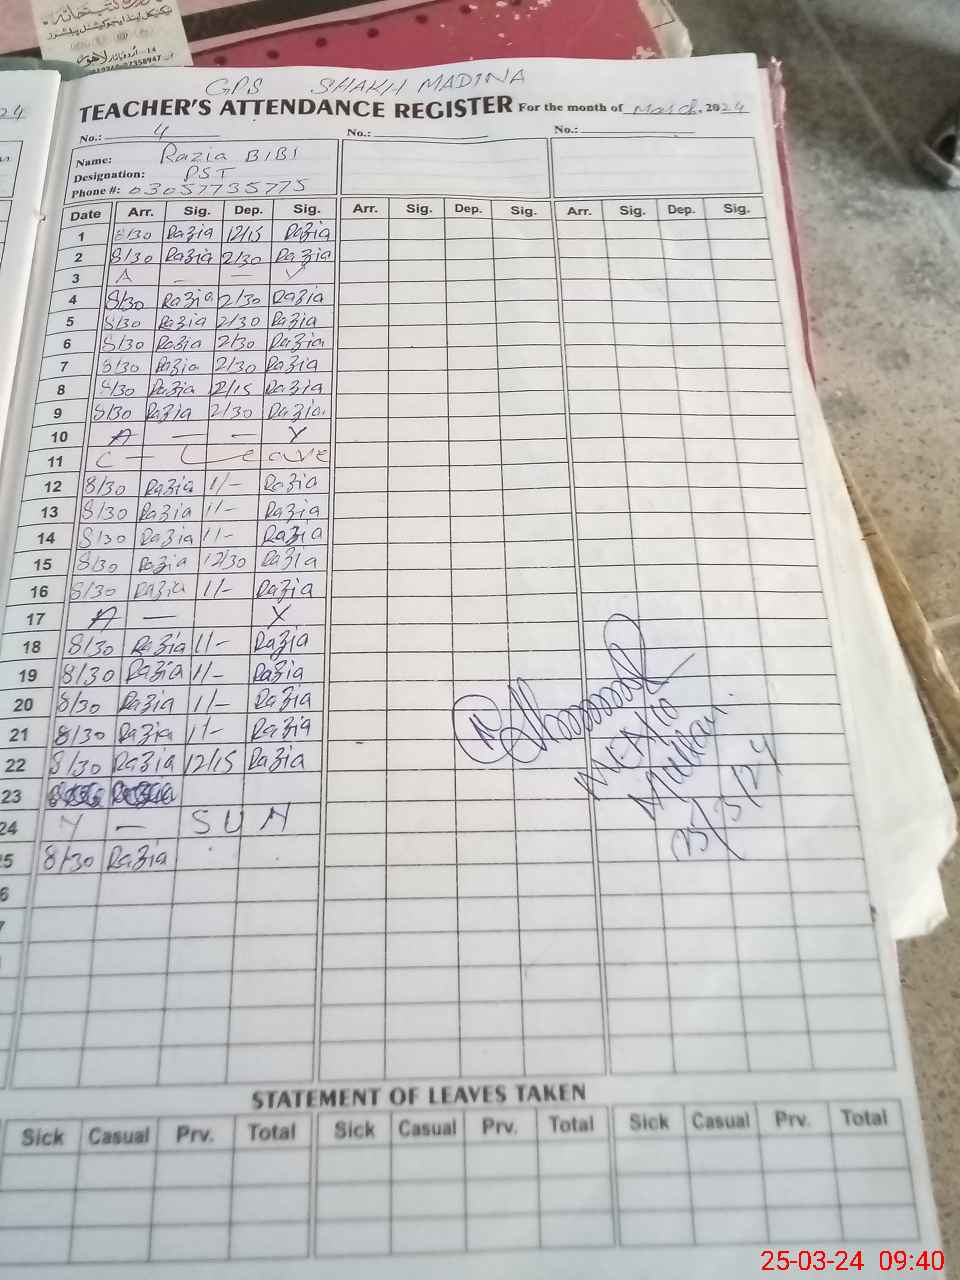 لاہور
24
GPS SHAKH MADINA
TEACHER'S ATTENDANCE REGISTER For the month of March, 2024
No.: 4 No.: No.:
Name: Razia BIBI
Designation: PST
Phone #: 03057735775
Date Arr. Sig. Dep. Sig. Arr. Sig. Dep. Sig. Arr. Sig. Dep. Sig.
1 8/30 Razia 12/15 Razia
2 8/30 Razia 2/30 Razia
3 A — — Y
4 8/30 Razia 2/30 Razia
5 8/30 Razia 2/30 Razia
6 8/30 Razia 2/30 Razia
7 8/30 Razia 2/30 Razia
8 8/30 Razia 12/15 Razia
9 8/30 Razia 2/30 Razia
10 A — — Y
11 C — Leave
12 8/30 Razia 1/- Razia
13 8/30 Razia 1/- Razia
14 8/30 Razia 1/- Razia
15 8/30 Razia 12/30 Razia
16 8/30 Razia 1/- Razia
17 A — X
18 8/30 Razia 1/- Razia
19 8/30 Razia 1/- Razia
20 8/30 Razia 1/- Razia
21 8/30 Razia 1/- Razia
22 8/30 Razia 12/15 Razia
23
24 Y — SUN
5 8/30 Razia
6
7
MEA/10
25/3/24
STATEMENT OF LEAVES TAKEN
Sick Casual Prv. Total Sick Casual Prv. Total Sick Casual Prv. Total
25-03-24 09:40